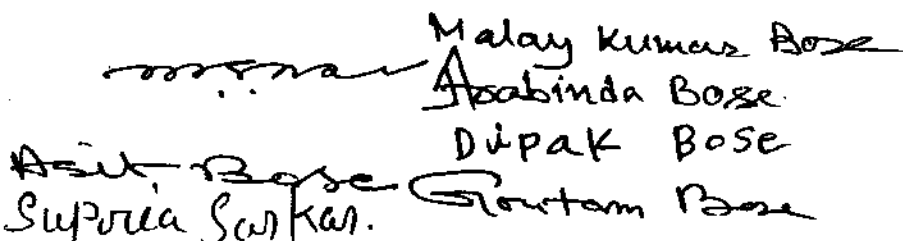 Malay Kumar Bose
Arabinda Bose.
Dipak Bose
Asit Bose
Goutam Bose
Suporia Sarkar.